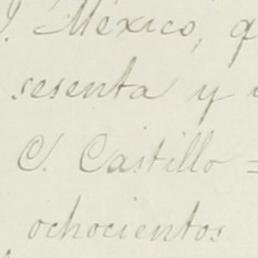 México, q
sesenta y
C. Castillo =
ochocientos